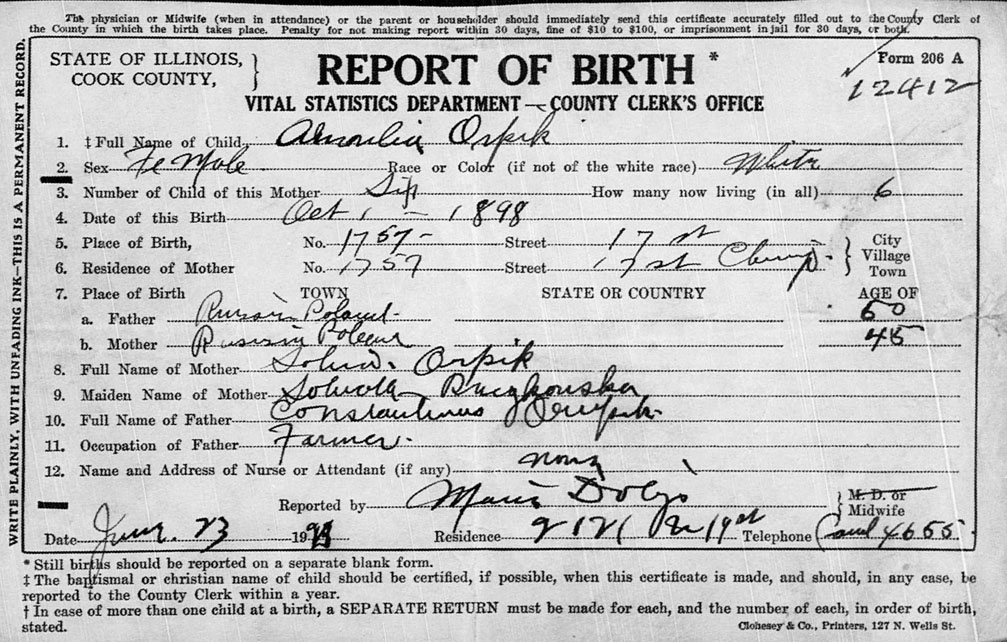 The physician or Midwife (when in attendance) or the parent or householder should immediately send this certificate accurately filled out to the County Clerk of
the County in which the birth takes place. Penalty for not making report within 30 days, fine of $10 to $100, or imprisonment in jail for 30 days, or both.
STATE OF ILLINOIS,
COOK COUNTY,
REPORT OF BIRTH *
Form 206 A
12412
VITAL STATISTICS DEPARTMENT — COUNTY CLERK'S OFFICE
1. ‡ Full Name of Child Orpik
2. Sex Fe Male Race or Color (if not of the white race) White
3. Number of Child of this Mother Six How many now living (in all) 6
4. Date of this Birth Oct 1 - 1898
5. Place of Birth, No. 1757 - Street 17 st
City
Village
Town
6. Residence of Mother No. 1757 Street 17 st
7. Place of Birth TOWN STATE OR COUNTRY AGE OF
a. Father Poland 50
b. Mother 45
8. Full Name of Mother Orpik
9. Maiden Name of Mother
10. Full Name of Father Constantinus
11. Occupation of Father Farmer
12. Name and Address of Nurse or Attendant (if any) none
Reported by M. D. or
Midwife
Date June 23 19 Residence 2121 19st Telephone 4655
* Still births should be reported on a separate blank form.
‡ The baptismal or christian name of child should be certified, if possible, when this certificate is made, and should, in any case, be
reported to the County Clerk within a year.
† In case of more than one child at a birth, a SEPARATE RETURN must be made for each, and the number of each, in order of birth,
stated.
Clohesey & Co., Printers, 127 N. Wells St.
WRITE PLAINLY, WITH UNFADING INK—THIS IS A PERMANENT RECORD.